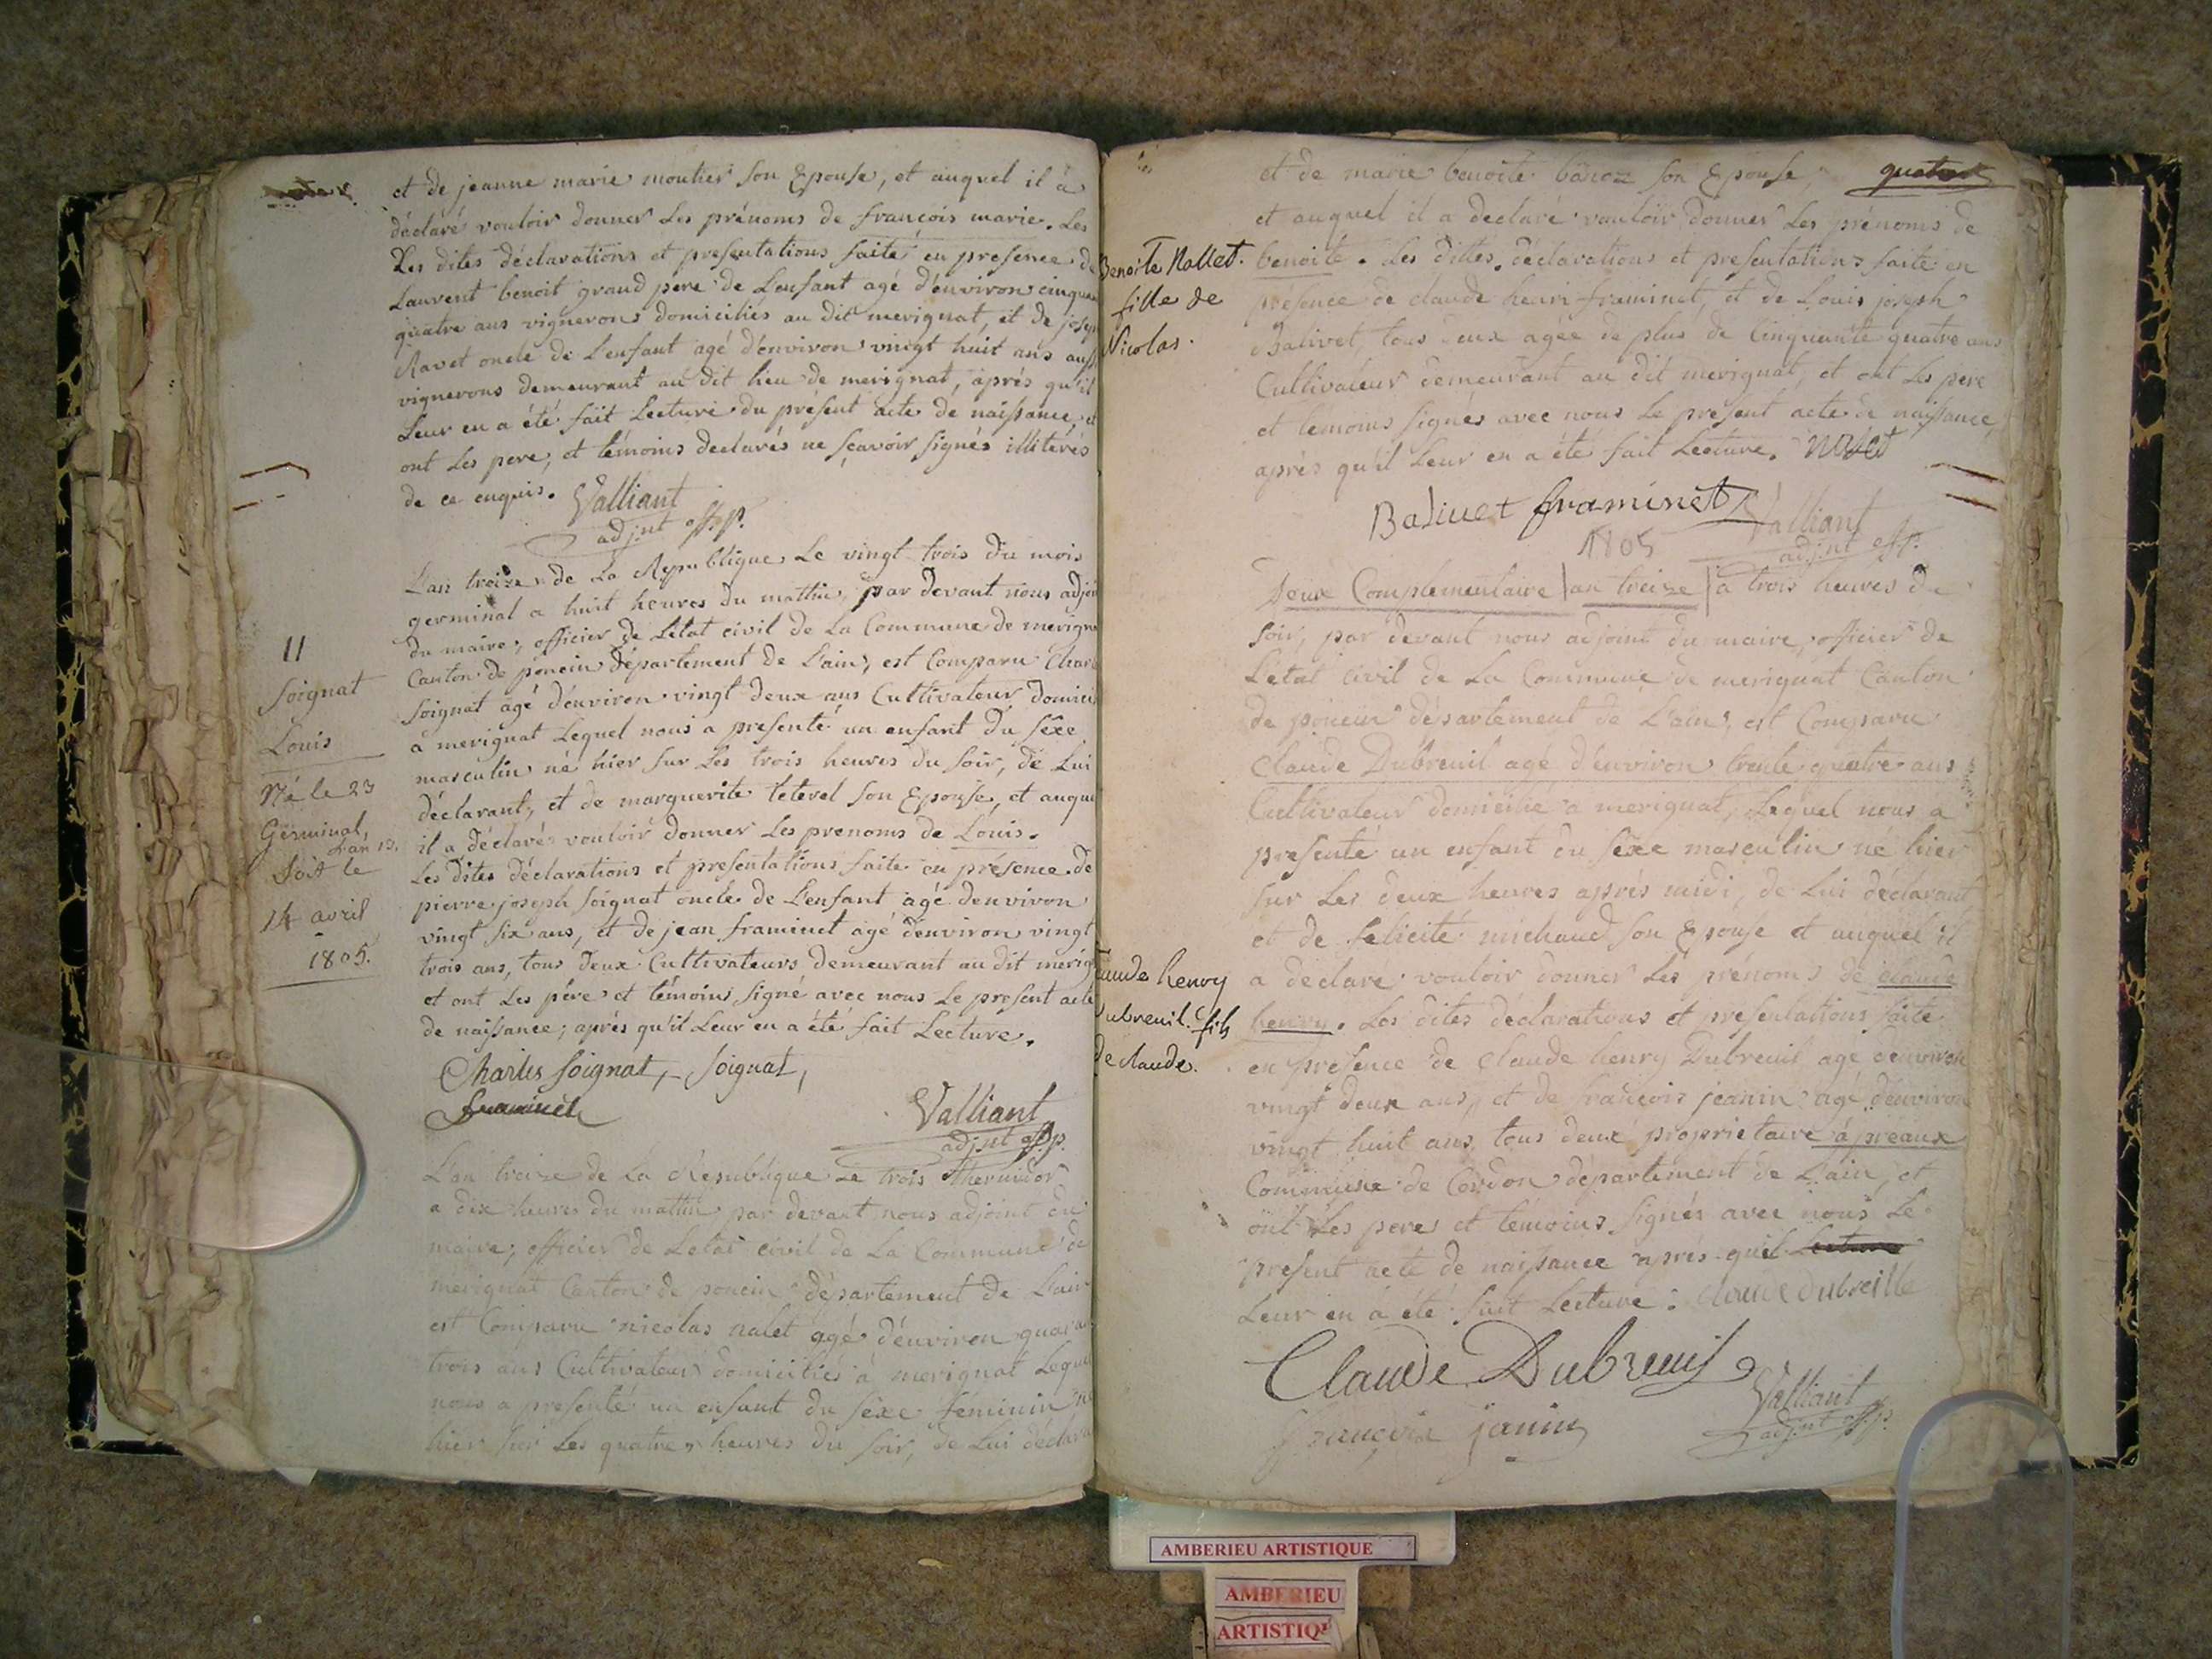 et de jeanne marie moutier son Epouse, et auquel il à
déclaré vouloir donner Les prénoms de françois marie. Les
Les dites déclarations et presentations faite en presence de
Laurent benoit grand pere de L'enfant agé d'environ cinquan
quatre ans vignerons domiciliés au dit merignat, et de josep
Ravet oncle de L'enfant agé d'environ vingt huit ans aussi
vignerons demeurant au dit lieu de merignat, après qu'il
Leur en a été fait Lecture du présent acte de naissance, et
ont Les pere, et témoins declarés ne sçavoir signés illitérés
de ce enquis. Valliant
adjnt off. p.
11
Soignat
Louis
Né le 23
Germinal,
L'an 13.
Soit le
14 avril
1805.
L'an treize de La Republique Le vingt trois du mois
germinal a huit heures du mattin par devant nous adjoi
du maire, officier de L'état civil de La Commune de merigna
Canton de poncin département de L'ain, est Comparu Charl
Soignat agé d'environ vingt deux ans Cultivateur domici
a merignat Lequel nous a presenté un enfant du sexe
masculin né hier sur Les trois heures du soir, de Lui
déclarant, et de marguerite tetevel son Epouse, et auque
il a déclaré vouloir donner Les prenoms de Louis.
Les dites déclarations et presentations faite en présence de
pierre joseph Soignat oncle de L'enfant agé d'environ
vingt six ans, et de jean framinet agé d'environ vingt
trois ans, tous deux Cultivateurs demeurant au dit merig
et ont Les père et témoins signé avec nous Le present acte
de naissance; après qu'il Leur en a été fait Lecture.
Charles Soignat, Soignat,
framinet
Valliant
adjnt off. p.
L'an treize de La République Le trois thermidor
a dix heures du mattin par devant nous adjoint du
maire, officier de L'etat civil de La Commune de
merignat Canton de poncin département de L'ain
est Comparu nicolas nalet agé d'environ quaran
trois ans Cultivateur domiciliés à merignat Leque
nous a presenté un enfant du sexe féminin né
hier sur Les quatre heures du soir, de Lui déclara
et de marie benoite baroz son Epouse,
et auquel il a declaré vouloir donner Les prénoms de
Benoite Nallet.
fille de
Nicolas.
benoite. Les dittes déclarations et presentations faite en
présence de claude henri framinet, et de Louis joseph
Balivet, tous deux agée de plus de Cinquante quatre ans
Cultivateur demeurant au dit merignat, et ont Les pere
et temoins signés avec nous Le present acte de naissance,
après qu'il Leur en a été fait Lecture. nalet
Balivet framinet
Valliant
adjnt off. p.
1805
Deux Complementaire an treize à trois heures de
soir, par devant nous adjoint du maire, officier de
L'état civil de La Commune de merignat Canton
de poncin département de L'ain, est Comparu
Claude Dubreuil agé d'environ trente quatre ans
Cultivateur domicilié a merignat, Lequel nous a
presenté un enfant du sexe masculin né hier
sur Les deux heures après midi, de Lui déclarant
et de felicité michaud son Epouse et auquel il
a déclaré vouloir donner Les prénoms de claude
Claude henry
Dubreuil. fils
de claude.
henry. Les dites déclarations et presentations faite
en presence de Claude henry Dubreuil agé d'environ
vingt deux ans, et de françois jeanin agé d'environ
vingt huit ans, tous deux proprietaire à preaux
Commune de Cerdon département de L'ain, et
ont Les peres et témoins signés avec nous Le
present acte de naissance après qu'il Lecture
Leur en a été fait Lecture.
Claude Dubreuil
françois janin
Valliant
adjnt off. p.
AMBERIEU ARTISTIQUE
AMBERIEU
ARTISTIQU